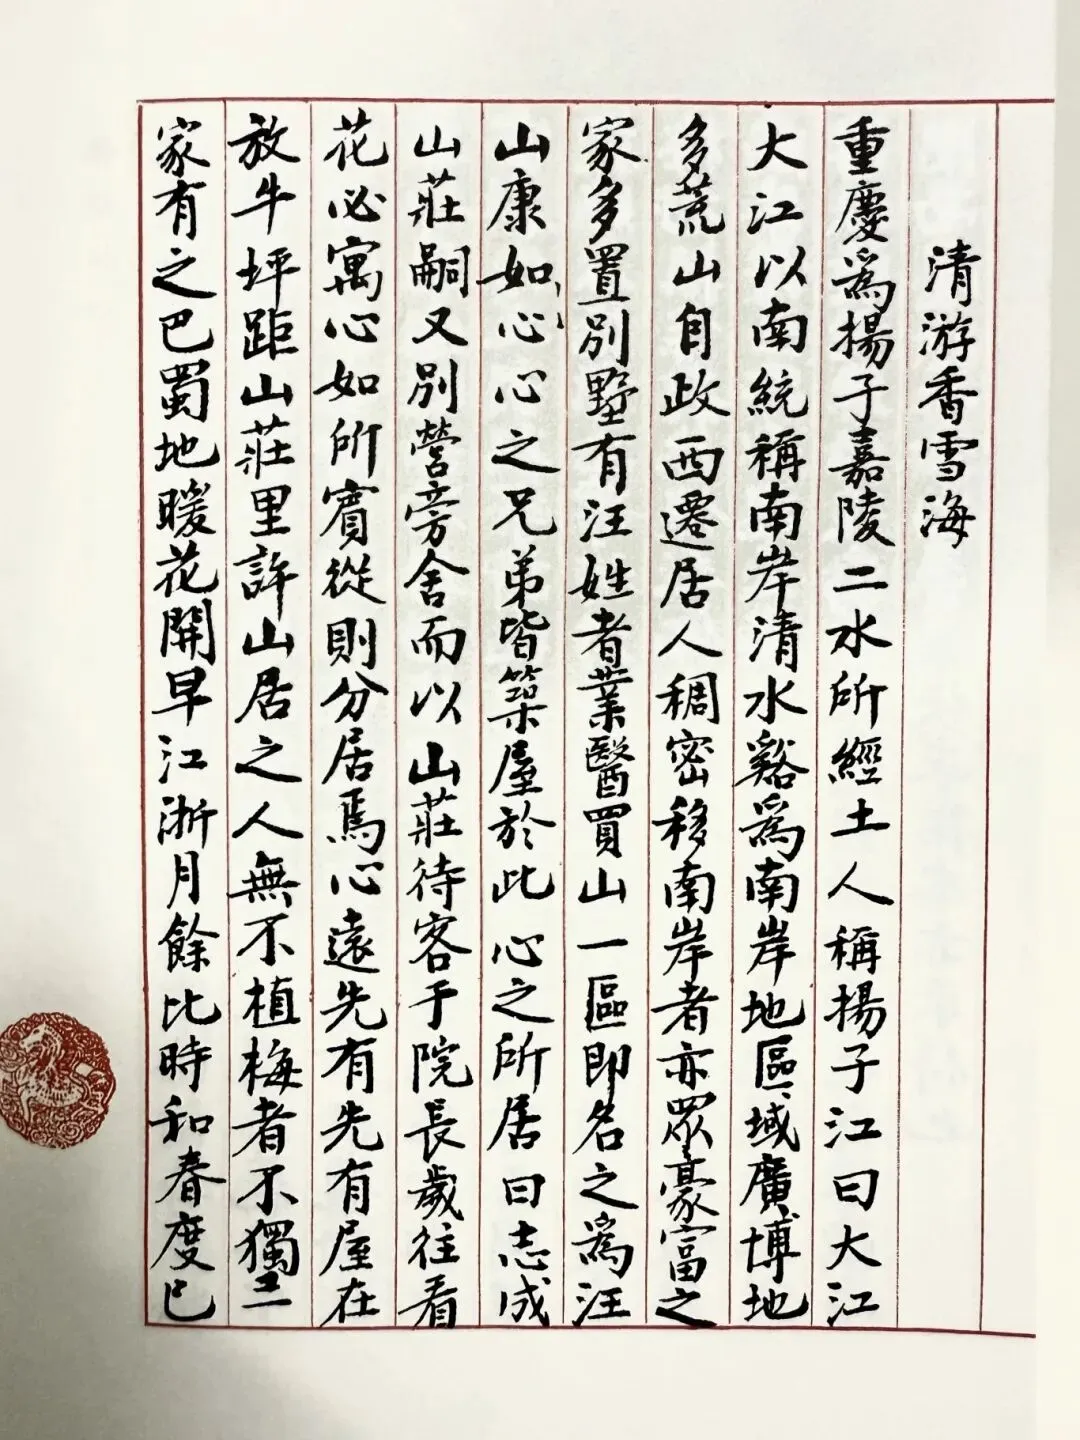 清游香雪海
重慶爲揚子嘉陵二水所經土人稱揚子江曰大江
大江以南統稱南岸清水谿爲南岸地區域廣博地
多荒山自政西遷居人稠密移南岸者亦眾豪富之
家多置別墅有汪姓者業醫買山一區即名之爲汪
山康如心心之兄弟皆築屋於此心之所居曰志成
山莊嗣又別營旁舍而以山莊待客于院長歲往看
花必寓心如所賓從則分居焉心遠先有先有屋在
放牛坪距山莊里許山居之人無不植梅者不獨二
家有之巴蜀地暖花開早江浙月餘比時和春度已